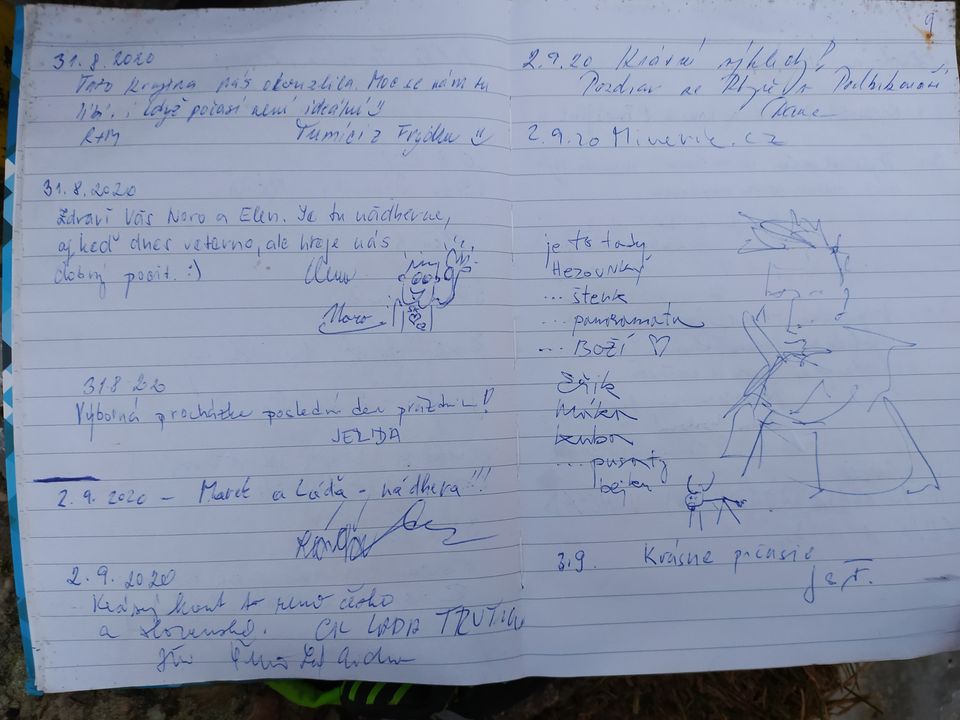 31.8.2020
Tato krajina nás okouzlila. Moc se nám tu
líbí. i když počasí není ideální
R+M Tumíci z Frýdku
31.8.2020
Zdraví Vás Noro a Elen. Je tu nádherne,
aj keď dnes veterno, ale hreje nás
dobrý pocit. :)
Noro
31.8 2020
Výborná procházka poslední den prázdnin!
JELDA
2.9.2020 - Marek a Láďa - nádhera!!!
2.9.2020
Krásný kout to mezi česko
a slovensko. CK LADA TRUTNOV
9
2.9.20 Krásné výhledy!
Pozdrav ze
2.9.20 Minerik.cz
je to tady
Hezounký
... štenk
... panoramata
... BOŽÍ ♡
kuba
... pusaty
bejken
3.9. Krásne počasie
J & F.